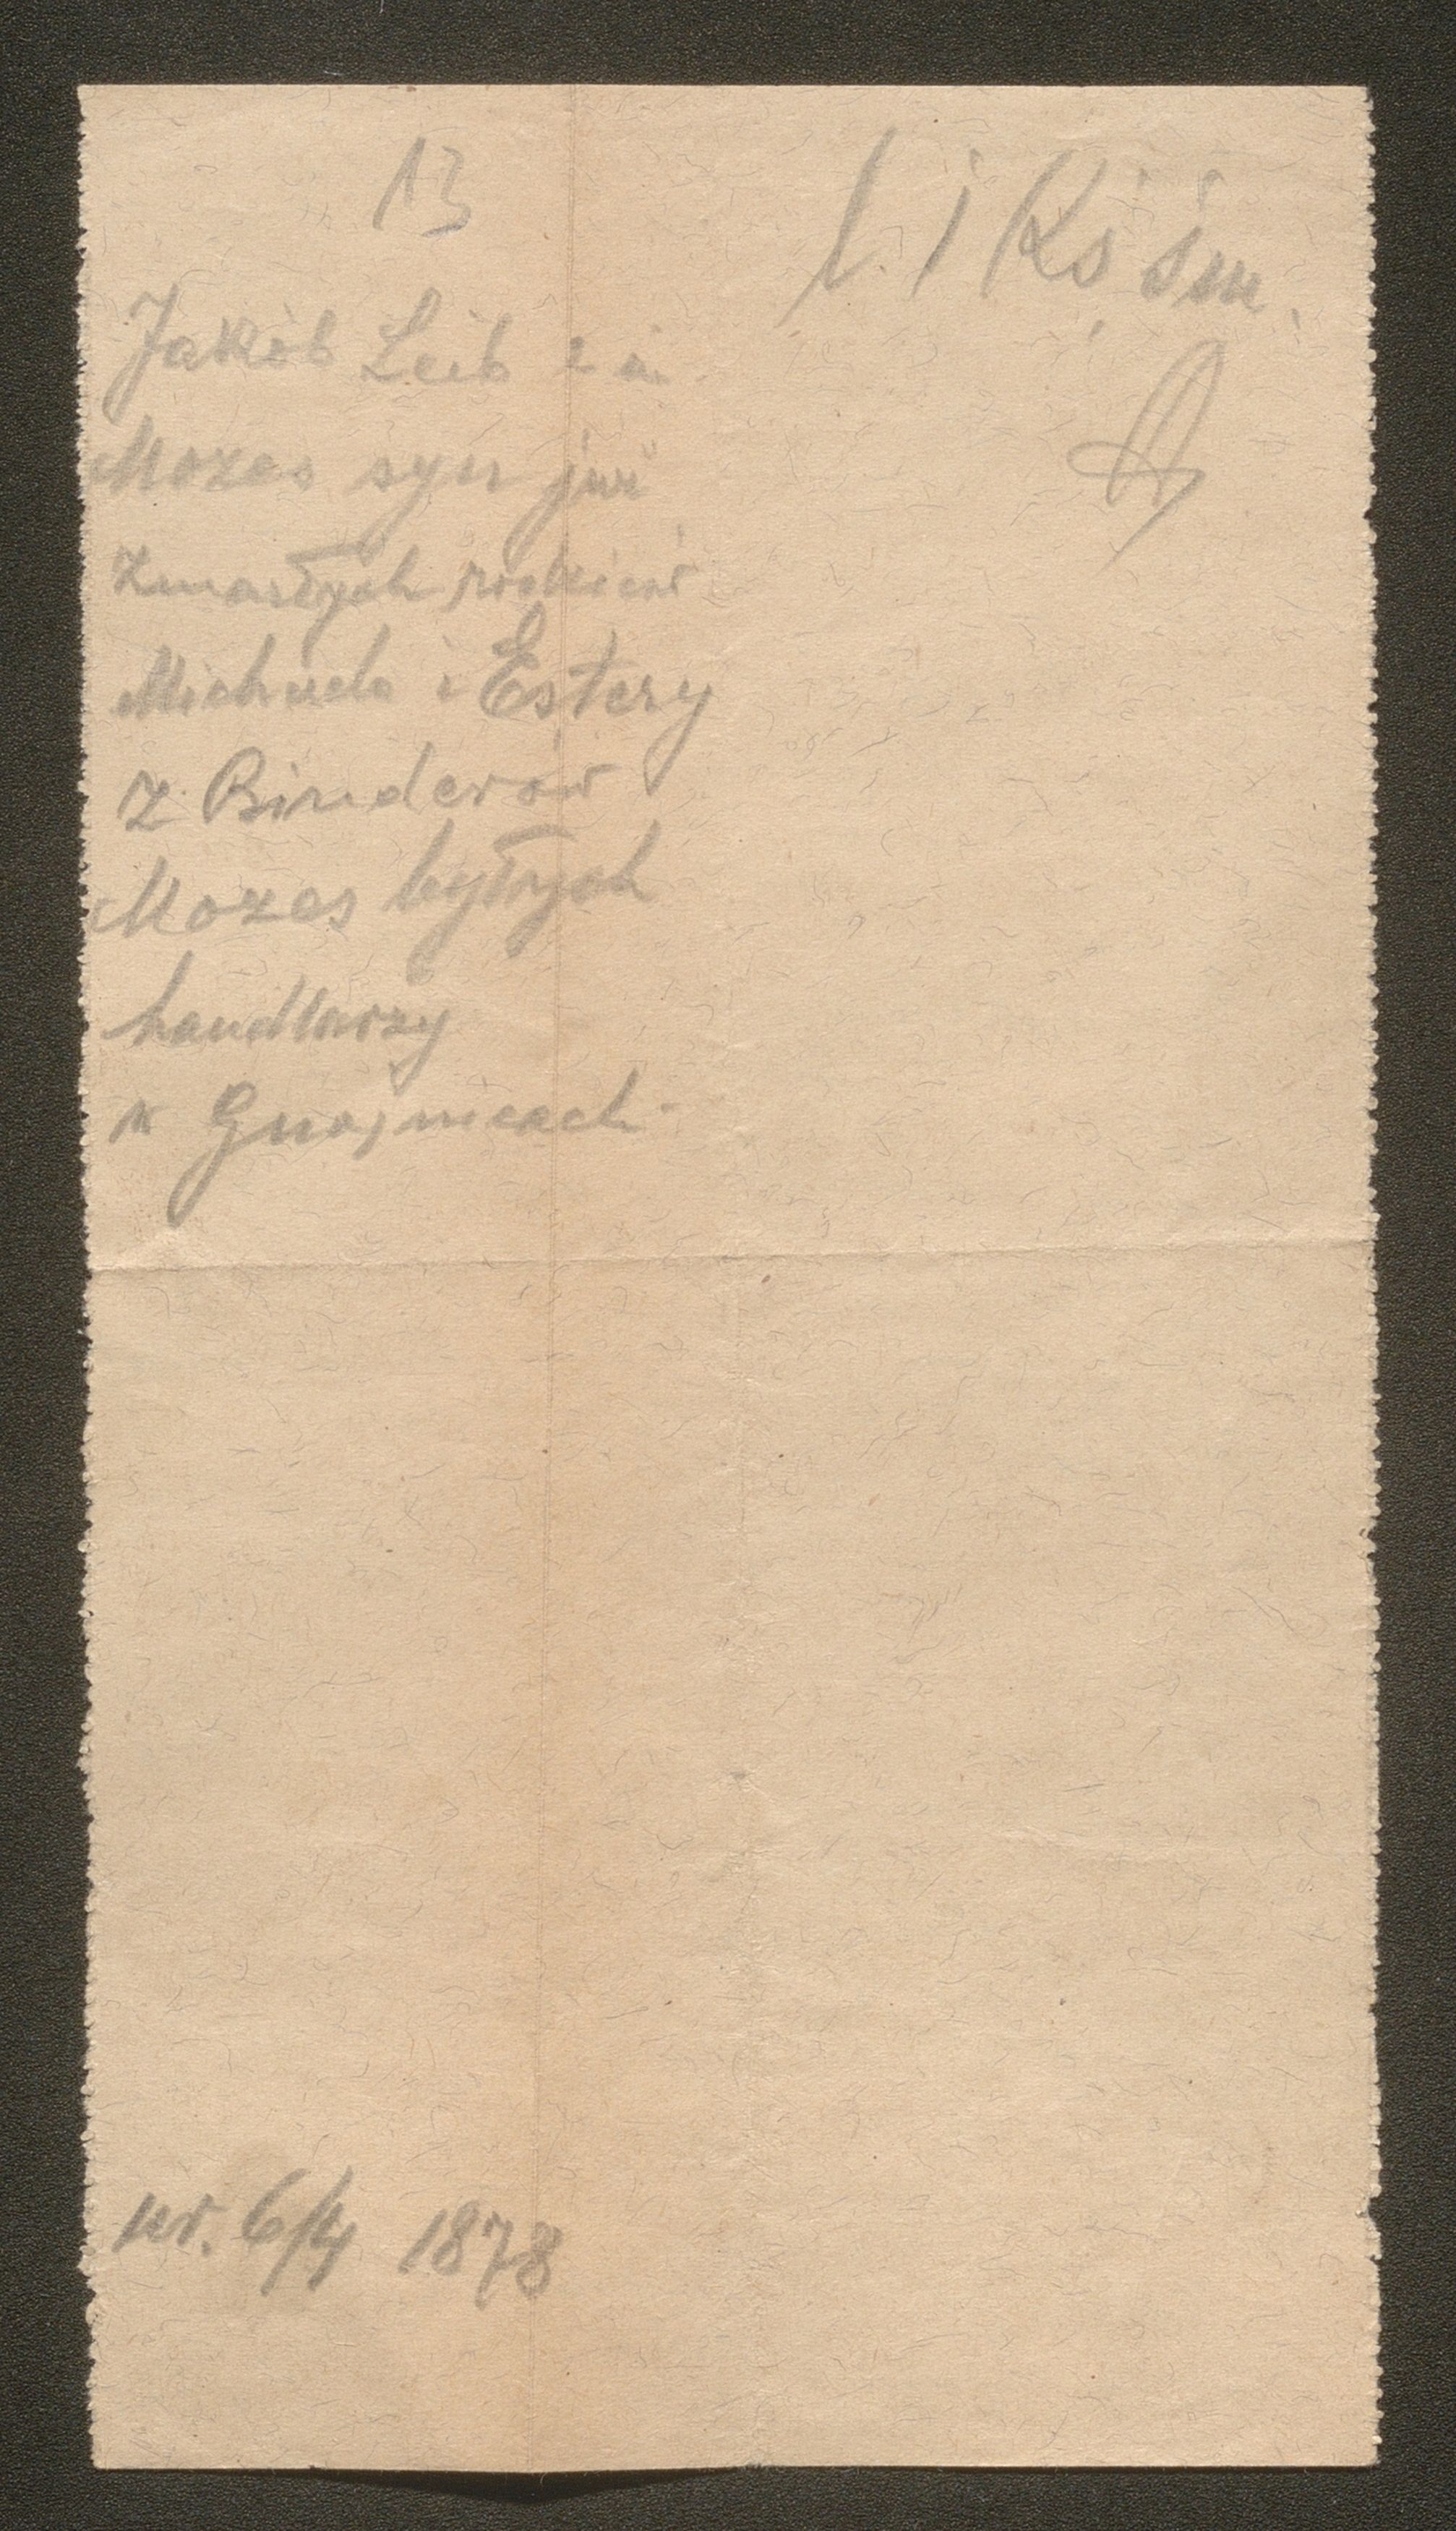 13
Jakób Leib 2 im.
Mozes syn już
zmarłych rodziców
Michaela i Estery
z Binderów
Mozes byłych
handlarzy
w Gnojnicach
ur. 6/4 1878